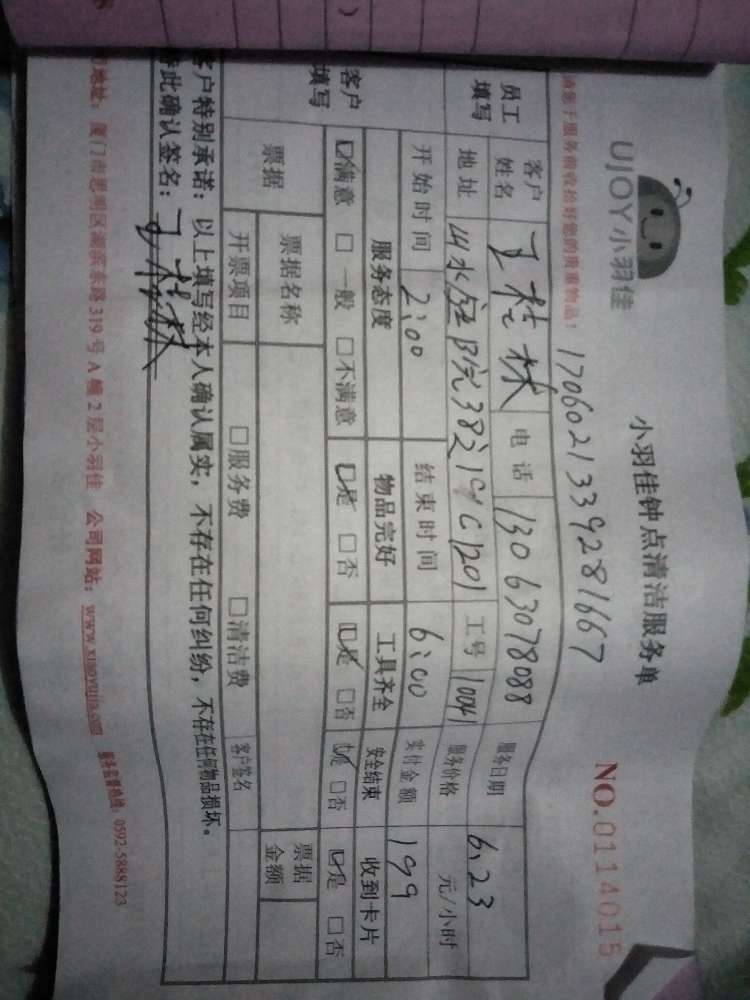 UJOY小羽佳
小羽佳钟点清洁服务单
NO.0114015
请您于服务前收拾好您的贵重物品！
170602133928 1667
员工填写
客户姓名 王桂林 电话 13063078088 服务日期 6.23
地址 38 C1201 工号 10041 服务价格 元/小时
开始时间 2:00 结束时间 6:00 实付金额 199
客户填写
服务态度 物品完好 工具齐全 安全结束 收到卡片
☑满意 □一般 □不满意 ☑是 □否 ☑是 □否 ☑是 □否 ☑是 □否
票据 票据名称 票据金额
开票项目 □服务费 □清洁费 客户签名
客户特别承诺：以上填写经本人确认属实，不存在任何纠纷，不存在任何物品损坏。
此确认签名：王桂林
地址：厦门市思明区湖滨东路319号A幢2层小羽佳 公司网站：www.xiaoyujia.com 服务监督热线：0592-5888123